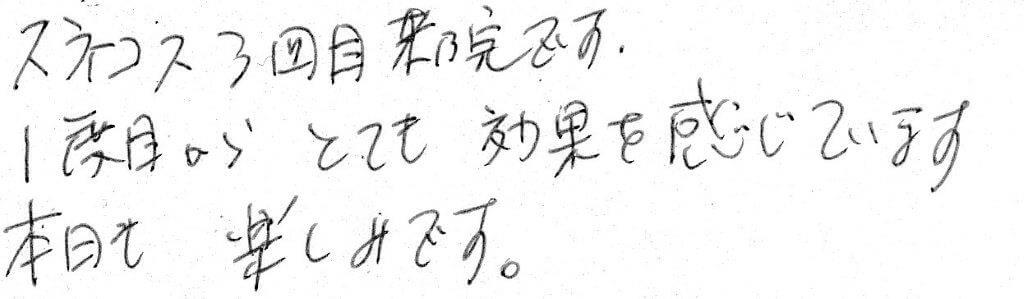 スネコス3回目来院です.
1度目から とても 効果を感じています
本日も 楽しみです。